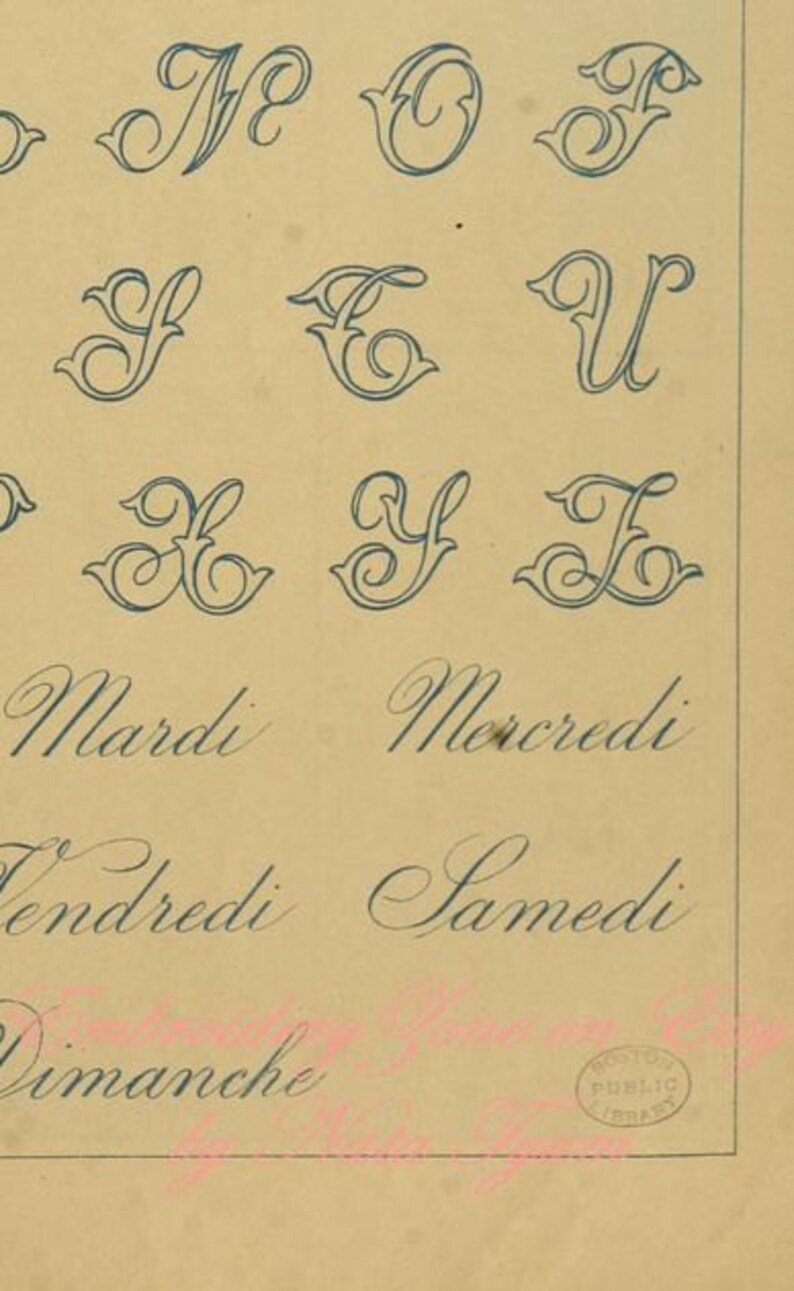 N O P
S T U
X Y Z
Mardi Mercredi
Vendredi Samedi
Embroidery Zone on Etsy
Dimanche
BOSTON
PUBLIC
LIBRARY
by Nata